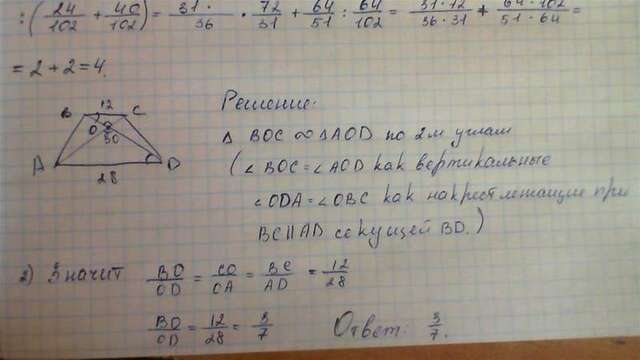 : ( 24/102 + 40/102 ) = 31·/36 · 72/31 + 64/51 : 64/102 = 31·12/36·31 + 64·102/51·64 =
= 2 + 2 = 4.
B 12 C
O
30
A D
28
Решение:
Δ BOC ∞ ΔAOD по 2м углам
( ∠ BOC = ∠ AOD как вертикальные
∠ODA = ∠OBC как накрестлежащие при
BC||AD секущей BD.)
2) Значит BO/OD = CO/OA = BC/AD = 12/28
BO/OD = 12/28 = 3/7 Ответ: 3/7.